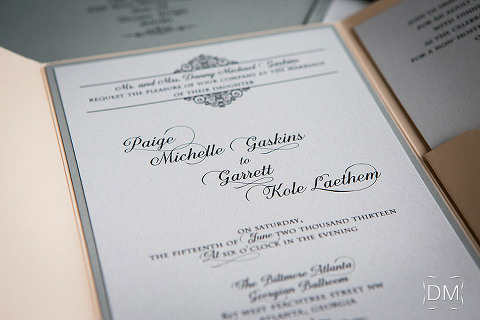 Mr. and Mrs. Danny Michael Gaskins
request the pleasure of your company at the marriage
of their daughter
Paige
Michelle Gaskins
to
Garrett
Kole Laethem
on Saturday,
the fifteenth of June two thousand thirteen
At six o'clock in the evening
The Biltmore Atlanta
Georgian Ballroom
West Peachtree Street NW
Atlanta, Georgia
DM